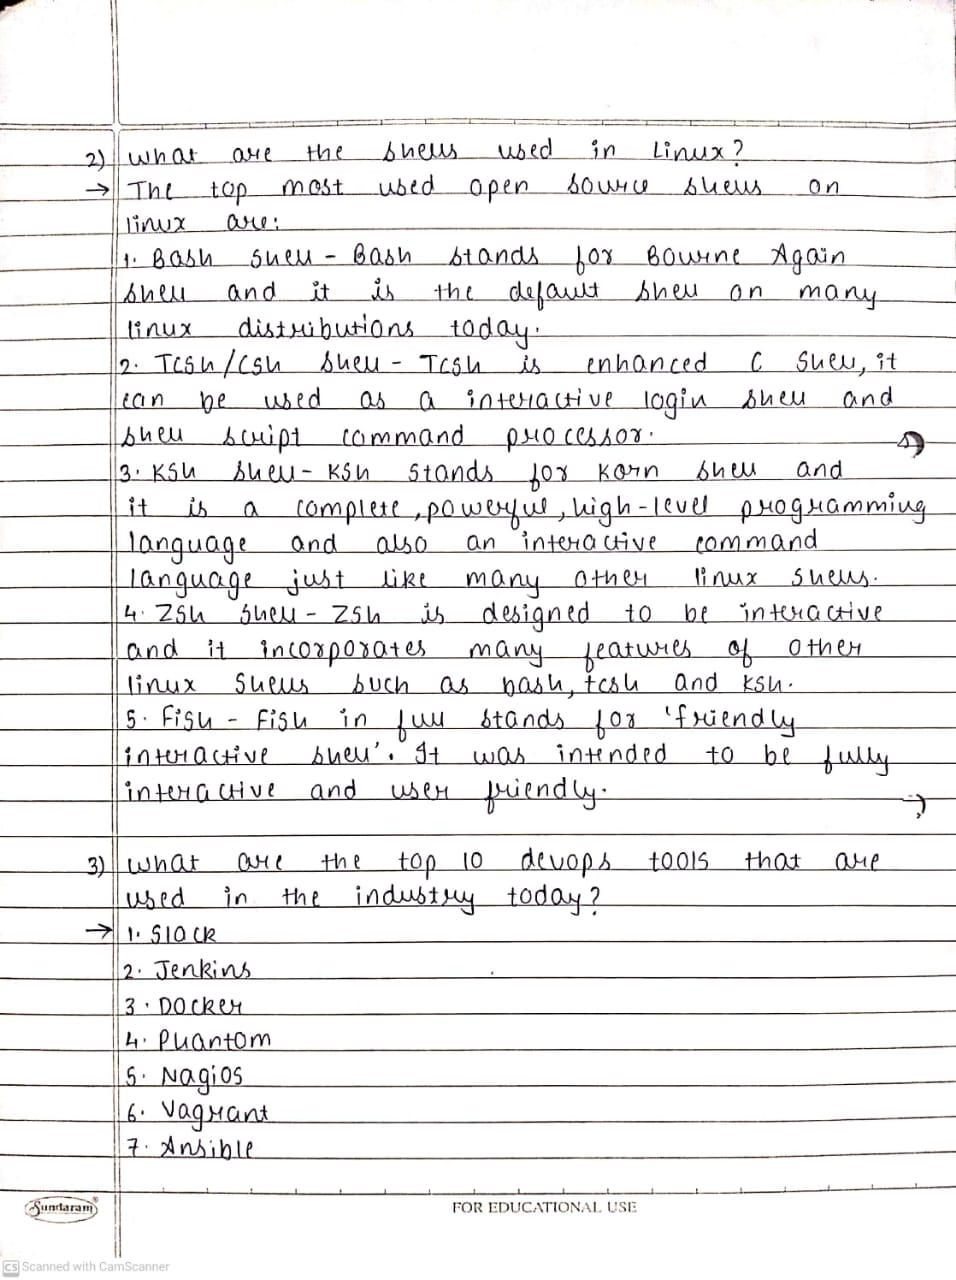 2) What are the shells used in Linux?
→ The top most used open source shells on
linux are:
1. Bash shell - Bash stands for Bourne Again
shell and it is the default shell on many
linux distributions today.
2. Tcsh/Csh shell - Tcsh is enhanced C shell, it
can be used as a interactive login shell and
shell script command processor.
3. Ksh shell - Ksh stands for Korn shell and
it is a complete, powerful, high-level programming
language and also an interactive command
language just like many other linux shells.
4. Zsh shell - Zsh is designed to be interactive
and it incorporates many features of other
linux shells such as bash, tcsh and ksh.
5. Fish - Fish in full stands for 'friendly
interactive shell'. It was intended to be fully
interactive and user friendly.
3) What are the top 10 devops tools that are
used in the industry today?
→ 1. Slack
2. Jenkins
3. Docker
4. Phantom
5. Nagios
6. Vagrant
7. Ansible
Sundaram®
FOR EDUCATIONAL USE
CS Scanned with CamScanner